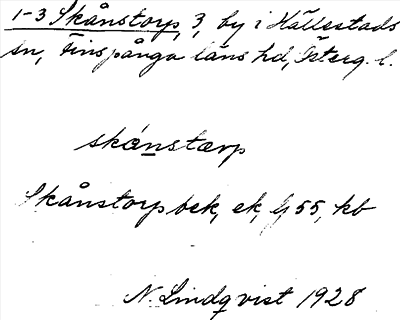 1-3 Skånstorp, 3, by i Hällestads
sn, Finspånga läns hd, Österg. l.
skánstorp
Skånstorp bek, ek, bl 55, kb
N. Lindqvist 1928